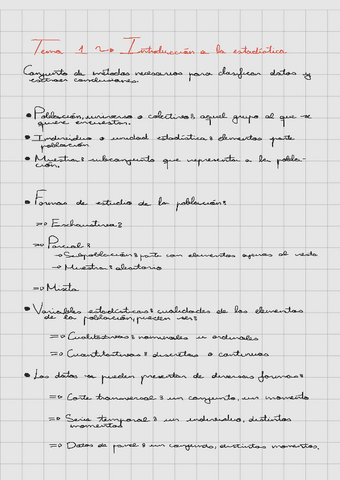 Tema 1 2→ Introducción a la estadística
Conjunto de métodos necesarios para clasificar datos y
extraer conclusiones.
• Población, universo o colectivo: aquel grupo al que se
quiere encuestar.
• Individuo o unidad estadística: elementos parte
población
• Muestra: subconjunto que representa a la pobla-
ción.
• Formas de estudio de la población:
⇒ Exhaustiva:
⇒ Parcial:
→ Subpoblación: parte con elementos ajenos al resto
→ Muestra: aleatorio
⇒ Mixta
• Variables estadísticas: cualidades de los elementos
de la población, pueden ser:
⇒ Cualitativas: nominales u ordinales
⇒ Cuantitativas: discretas o continuas
• Los datos se pueden presentar de diversas formas:
⇒ Corte transversal: un conjunto, un momento
⇒ Serie temporal: un individuo, distintos
momentos
⇒ Datos de panel: un conjunto, distintos momentos.